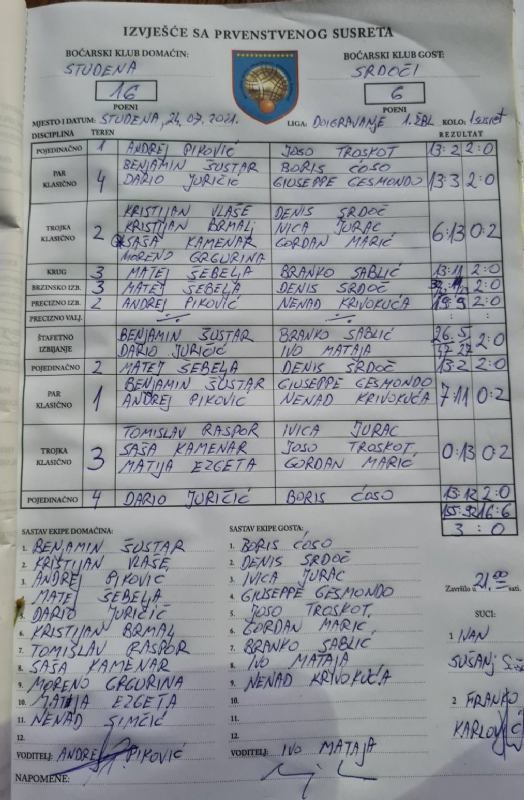 IZVJEŠĆE SA PRVENSTVENOG SUSRETA
BOĆARSKI KLUB DOMAĆIN: BOĆARSKI KLUB GOST:
STUDENA SRDOČI
16 6
POENI POENI
MJESTO I DATUM: STUDENA, 24.07.2021. LIGA: DOIGRAVANJE 1.ŽBL KOLO: 1 susret
DISCIPLINA TEREN REZULTAT
POJEDINAČNO 1 ANDREJ PIKOVIĆ JOSO TROSKOT 13:2 2:0
PAR KLASIČNO 4 BENJAMIN ŠUSTAR BORIS ĆOSO 13:3 2:0
DARIO JURIČIĆ GIUSEPPE GESMONDO
TROJKA KLASIČNO 2 KRISTIJAN VLAŠE DENIS SRDOČ 6:13 0:2
KRISTIJAN BRMALJ IVICA JURAC
SAŠA KAMENAR GORDAN MARIĆ
MORENO GRGURINA
KRUG 3 MATEJ SEBELJA BRANKO SABLIĆ 13:11 2:0
BRZINSKO IZB. 3 MATEJ SEBELJA DENIS SRDOČ 2:0
PRECIZNO IZB. 2 ANDREJ PIKOVIĆ NENAD KRIVOKUĆA 19:9 2:0
PRECIZNO VALJ. : :
ŠTAFETNO IZBIJANJE BENJAMIN ŠUSTAR BRANKO SABLIĆ 26:5 2:0
DARIO JURIČIĆ IVO MATAJA 37 27
POJEDINAČNO 2 MATEJ SEBELJA DENIS SRDOČ 13:2 2:0
PAR KLASIČNO 1 BENJAMIN ŠUSTAR GIUSEPPE GESMONDO 7:11 0:2
ANDREJ PIKOVIĆ NENAD KRIVOKUĆA
TROJKA KLASIČNO 3 TOMISLAV RASPOR IVICA JURAC 0:13 0:2
SAŠA KAMENAR JOSO TROSKOT
MATIJA EZGETA GORDAN MARIĆ
POJEDINAČNO 4 DARIO JURIČIĆ BORIS ĆOSO 13:12 2:0
16:6
3 : 0
SASTAV EKIPE DOMAĆINA: SASTAV EKIPE GOSTA:
1. BENJAMIN ŠUSTAR 1. BORIS ĆOSO
2. KRISTIJAN VLAŠE 2. DENIS SRDOČ
3. ANDREJ PIKOVIĆ 3. IVICA JURAC
MATEJ SEBELJA 4. GIUSEPPE GESMONDO
DARIO JURIČIĆ 5. JOSO TROSKOT
6. KRISTIJAN BRMALJ 6. GORDAN MARIĆ
7. TOMISLAV RASPOR 7. BRANKO SABLIĆ
8. SAŠA KAMENAR 8. IVO MATAJA
9. MORENO GRGURINA 9. NENAD KRIVOKUĆA
10. MATIJA EZGETA 10.
11. NENAD SIMČIĆ 11.
12. 12.
VODITELJ: ANDREJ PIKOVIĆ VODITELJ: IVO MATAJA
Završilo u 21,00 sati.
SUCI:
1 IVAN
SUŠANJ
2 FRANKO
KARLOVIĆ
NAPOMENE: